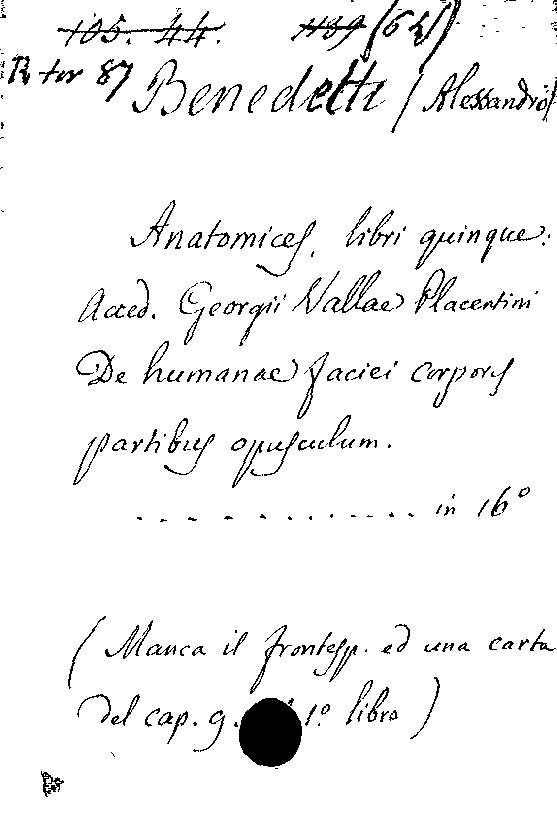 105. 44. 1139 (64)
R ter 87 Benedetti (Alessandro)
Anatomices, libri quinque.
Acced. Georgii Vallae Placentini
De humanae faciei corporis
partibus opusculum.
. . . . . . . . . . . . in 16°
(Manca il frontesp. ed una carta
del cap. 9. 1° libro)